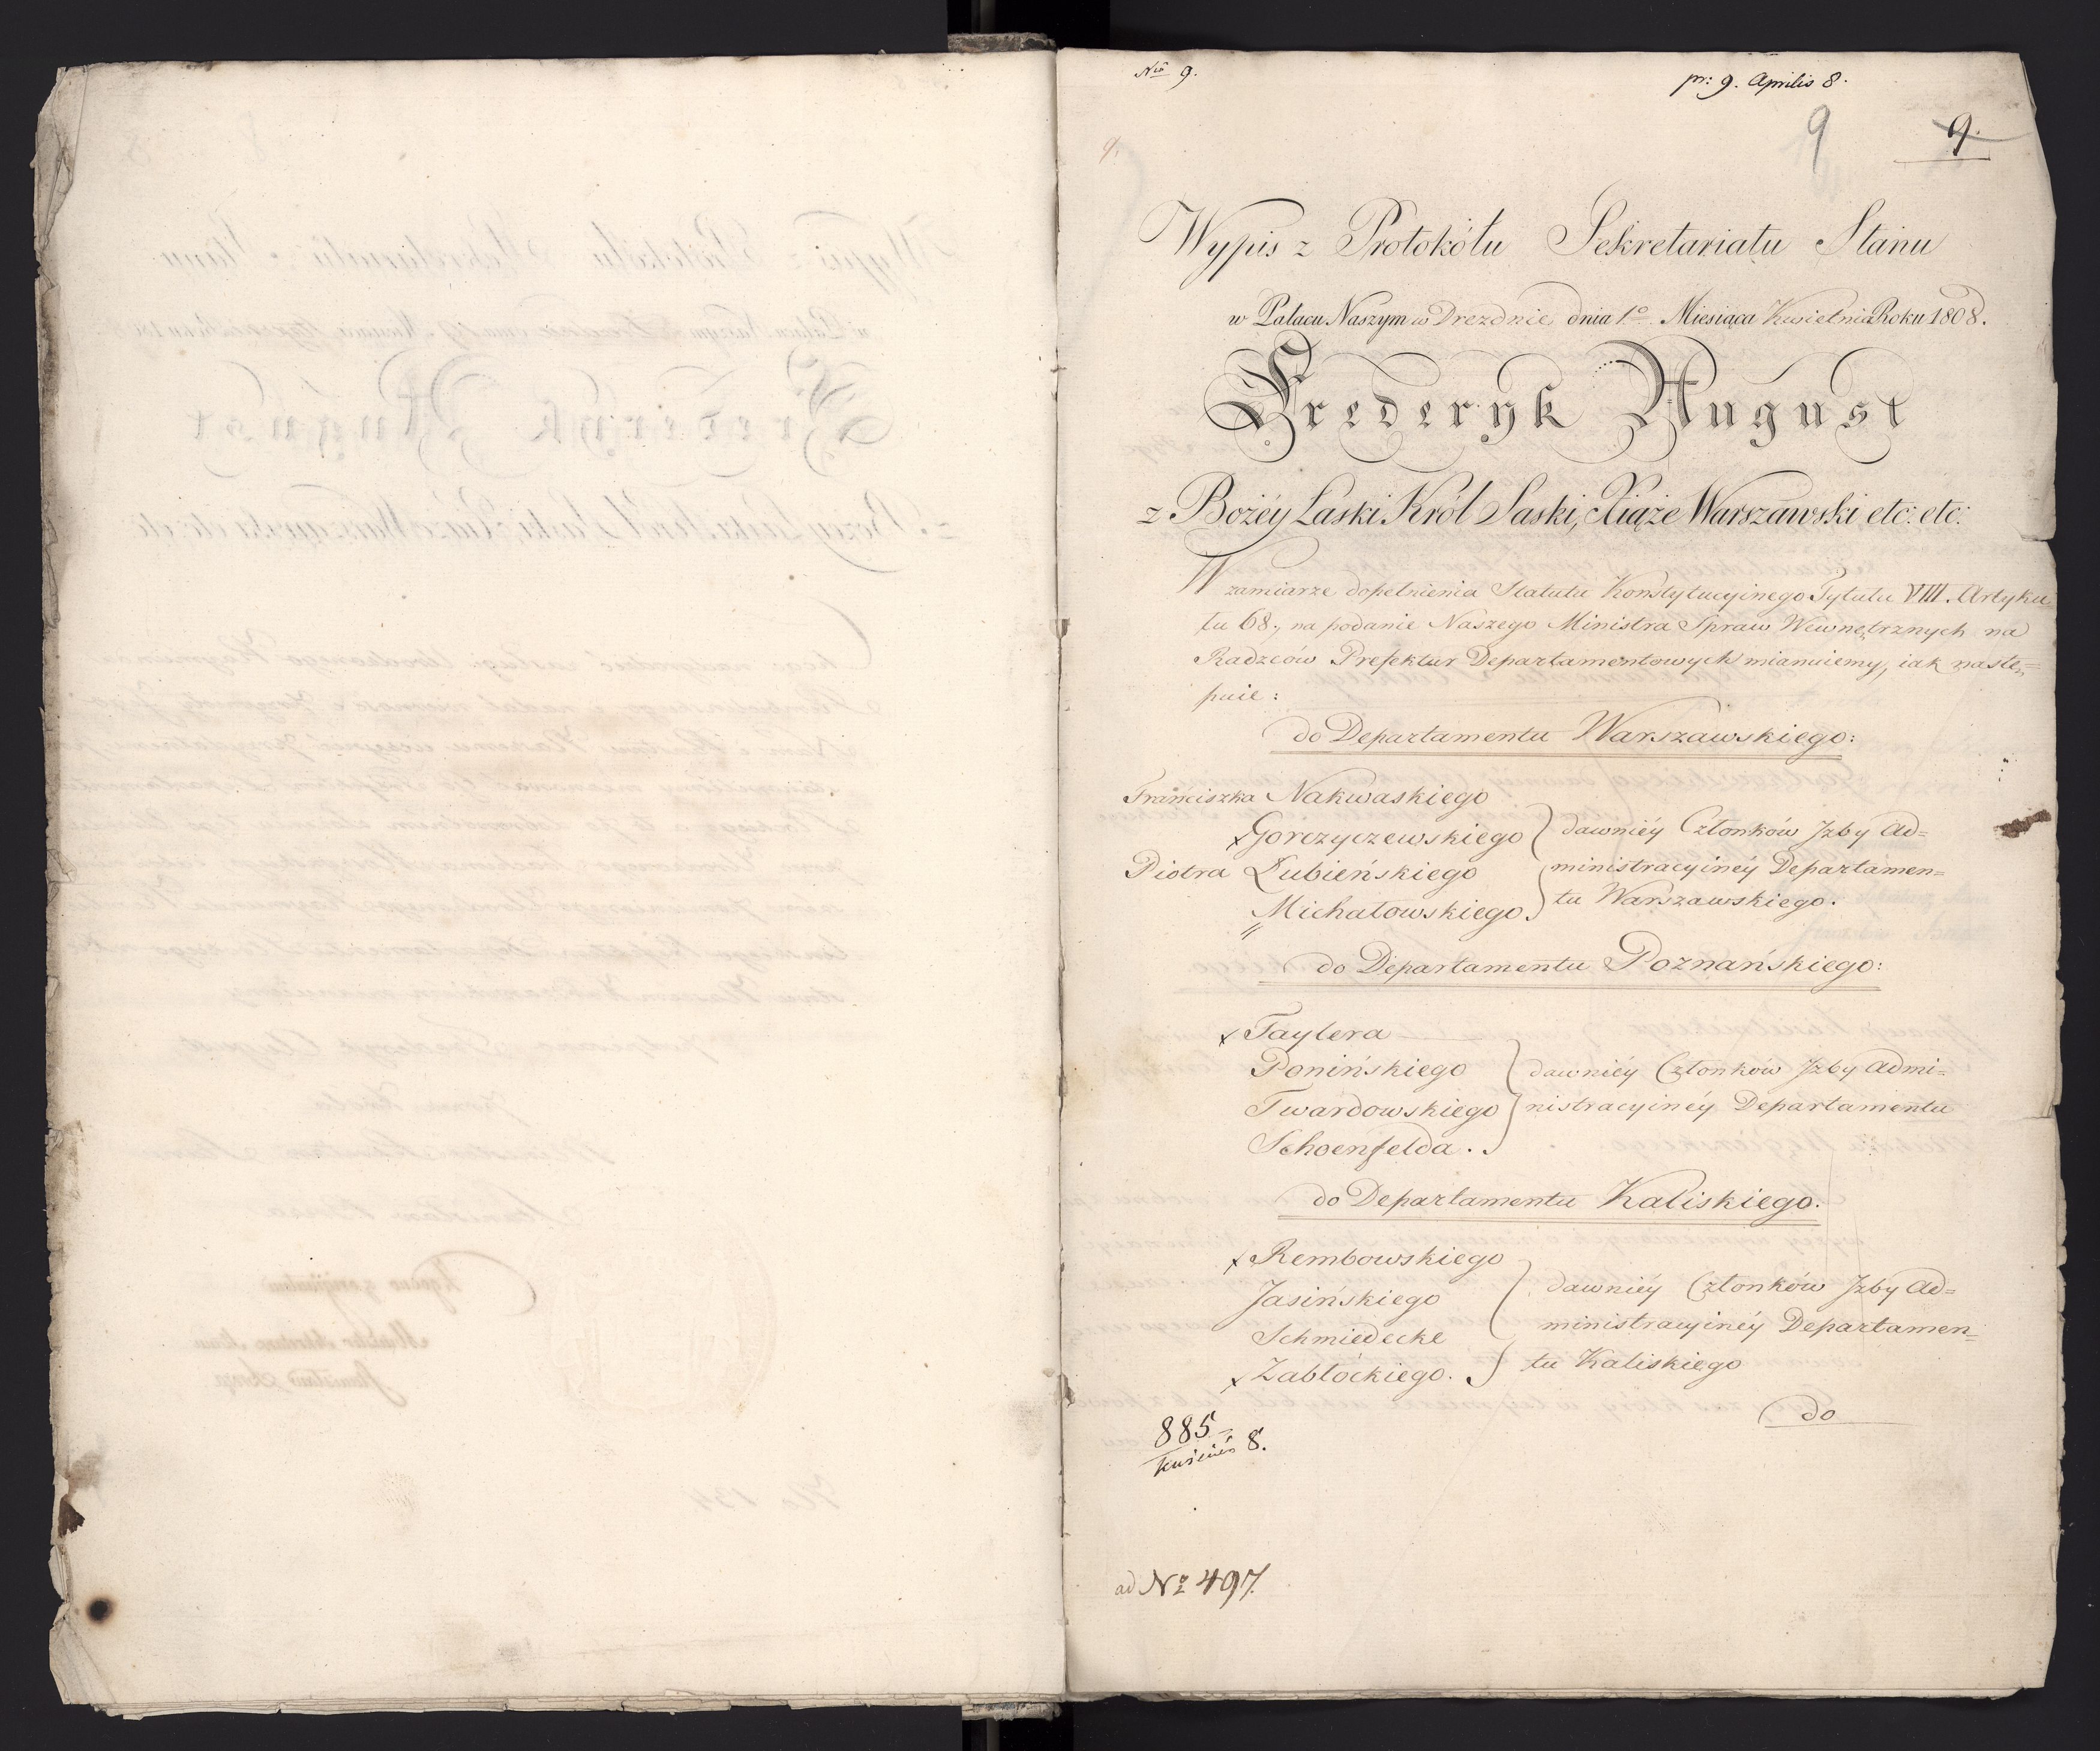 Nro 9.
pr: 9. Aprilis 8.
9
9.
9.
Wypis z Protokółu Sekretariatu Stanu
w Pałacu Naszym w Dreznie dnia 1o Miesiąca Kwietnia Roku 1808.
Frederyk August
z Bożéy Łaski Król Saski, Xiąże Warszawski etc: etc:
W zamiarze dopełnienia Statutu Konstytucyinego Tytułu VIII. Artyku
łu 68, na podanie Naszego Ministra Spraw Wewnętrznych na
Radzców Prefektur Departamentowych mianuiemy, iak nastę=
puie:
do Departamentu Warszawskiego:
Franciszka Nakwaskiego
Gorczyczewskiego
Piotra Łubieńskiego
Michałowskiego
dawniéy Członków Jzby Ad=
ministracyinéy Departamen=
tu Warszawskiego.
do Departamentu Poznańskiego:
Taylera
Ponińskiego
Twardowskiego
Schoenfelda.
dawniéy Członków Jzby Admi=
nistracyinéy Departamentu
do Departamentu Kaliskiego.
Rembowskiego
Jasińskiego
Schmiedecke
Zabłockiego.
dawniéy Członków Jzby Ad=
ministracyinéy Departamen=
tu Kaliskiego
do
885
8.
ad No 497.